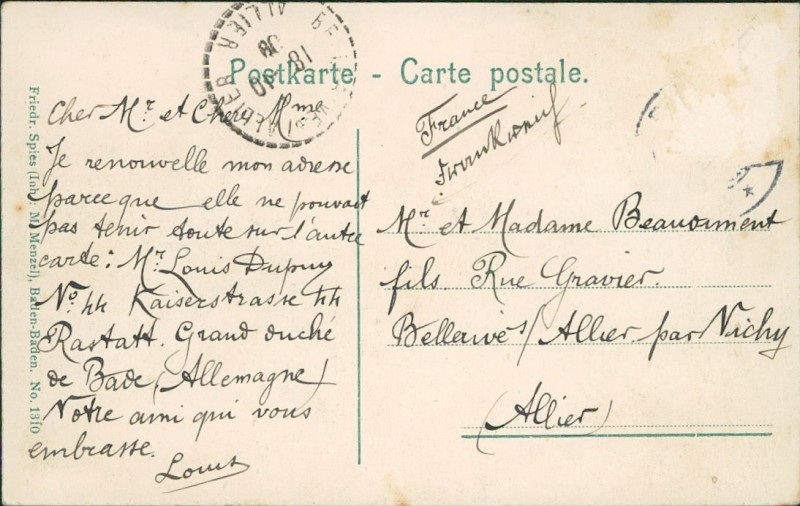 Postkarte - Carte postale.
Friedr. Spies (Inh. M. Menzel), Baden-Baden. No. 1310
ALLIER
18 - 10
09
Cher Mr et Chère Mme
Je renouvelle mon adresse
parce que elle ne pouvait
pas tenir toute sur l'autre
carte: Mr Louis Dupuy
No 44 Kaiserstrasse 44
Rastatt. Grand duché
de Bade (Allemagne)
Notre ami qui vous
embrasse.
Louis
France
Frankreich
Mr et Madame
fils Rue Gravier.
Bellerive s/ Allier par Vichy
(Allier)